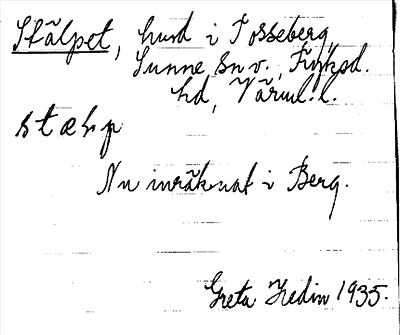 Stälpet, husd i Tosseberg,
Sunne sn v., Fryksd.
hd, Värml. l.
stælp
Nu inräknat i Berg.
Greta Hedin 1935.